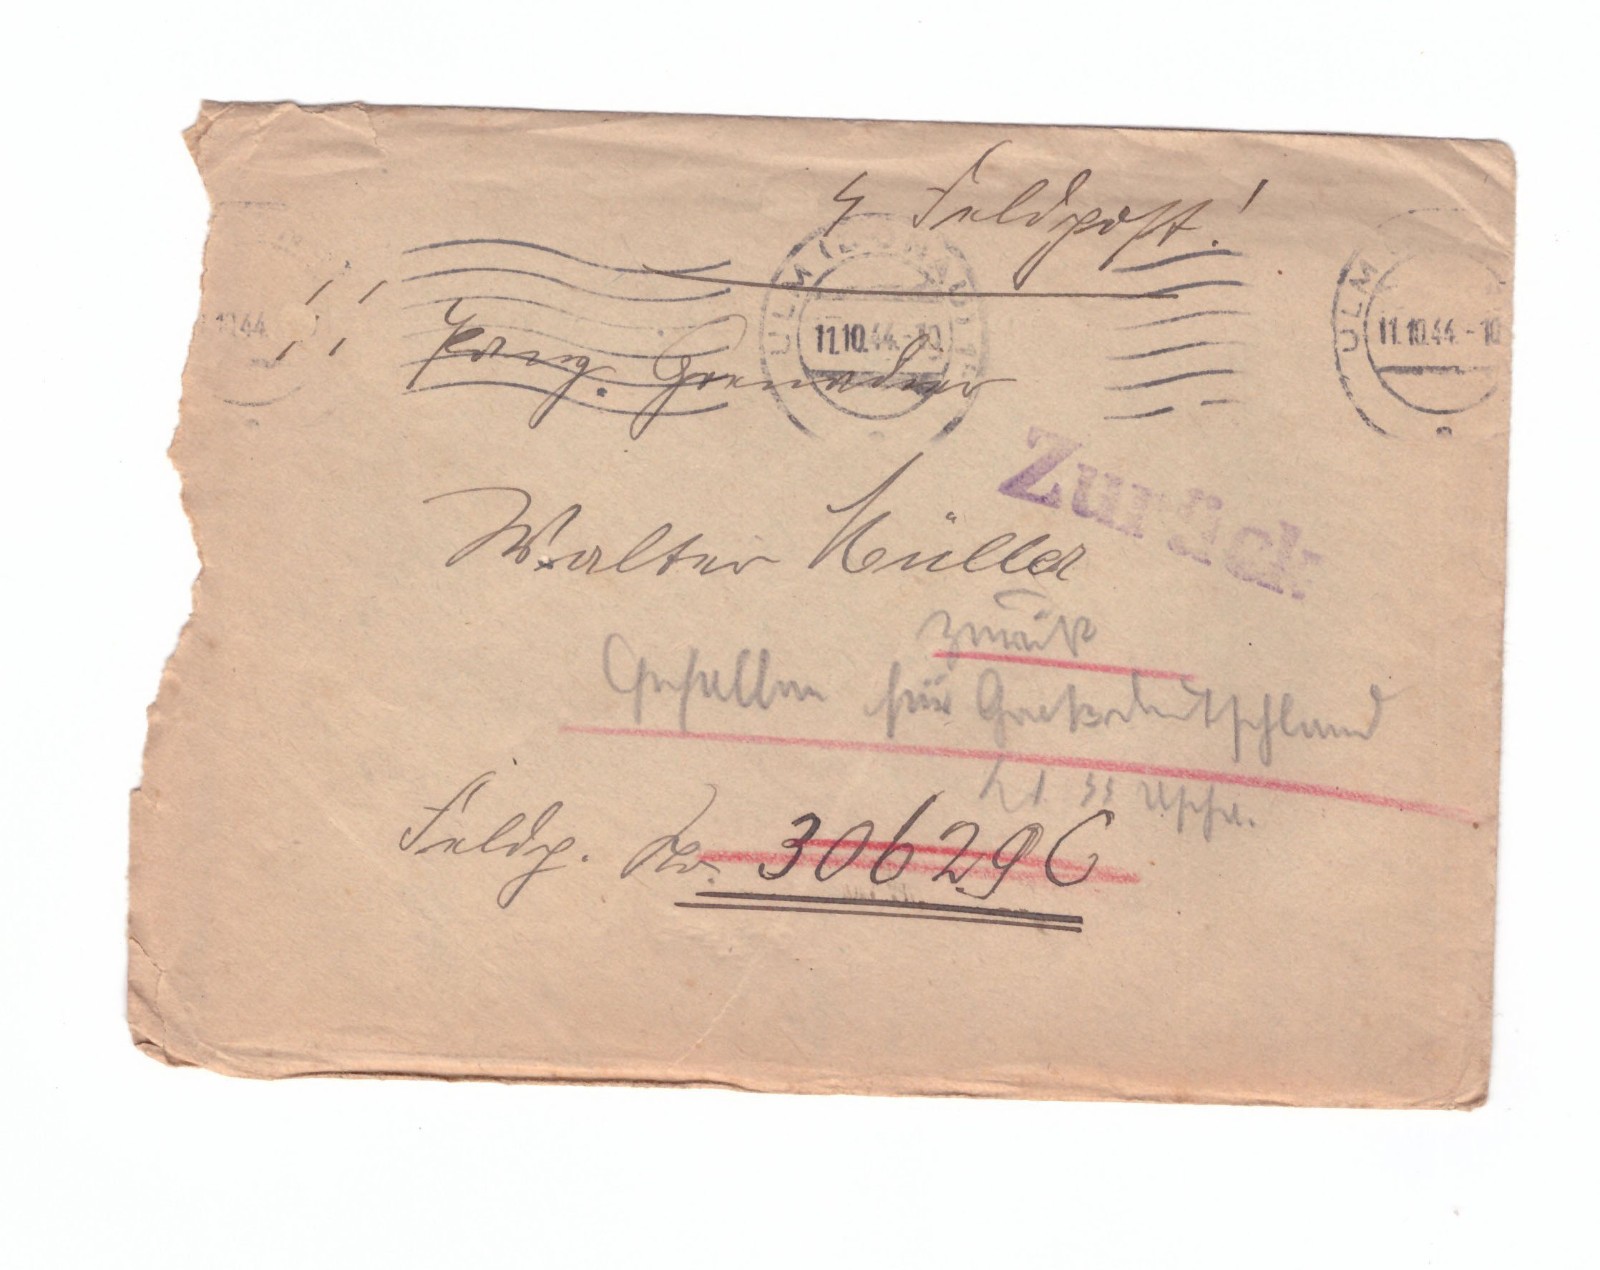 Feldpost!
11.10.44.-10
11.10.44-10
10.44
Panz. Grenadier
Zurück
Walter Müller
zurück
Gefallen für Grossdeutschland
Uscha.
Feldp. Nr. 30629C